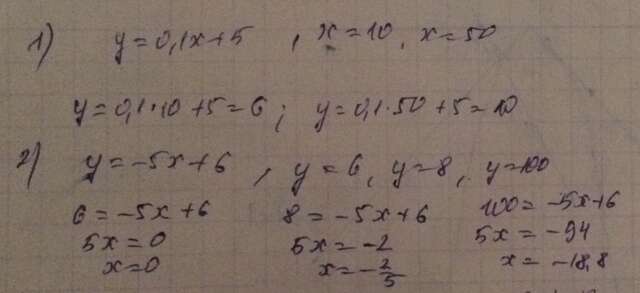 1) y=0,1x+5 , x=10, x=50
y=0,1·10+5=6; y=0,1·50+5=10
2) y=-5x+6 , y=6, y=8, y=100
6=-5x+6 8=-5x+6 100=-5x+6
5x=0 5x=-2 5x=-94
x=0 x=-2/5 x=-18,8